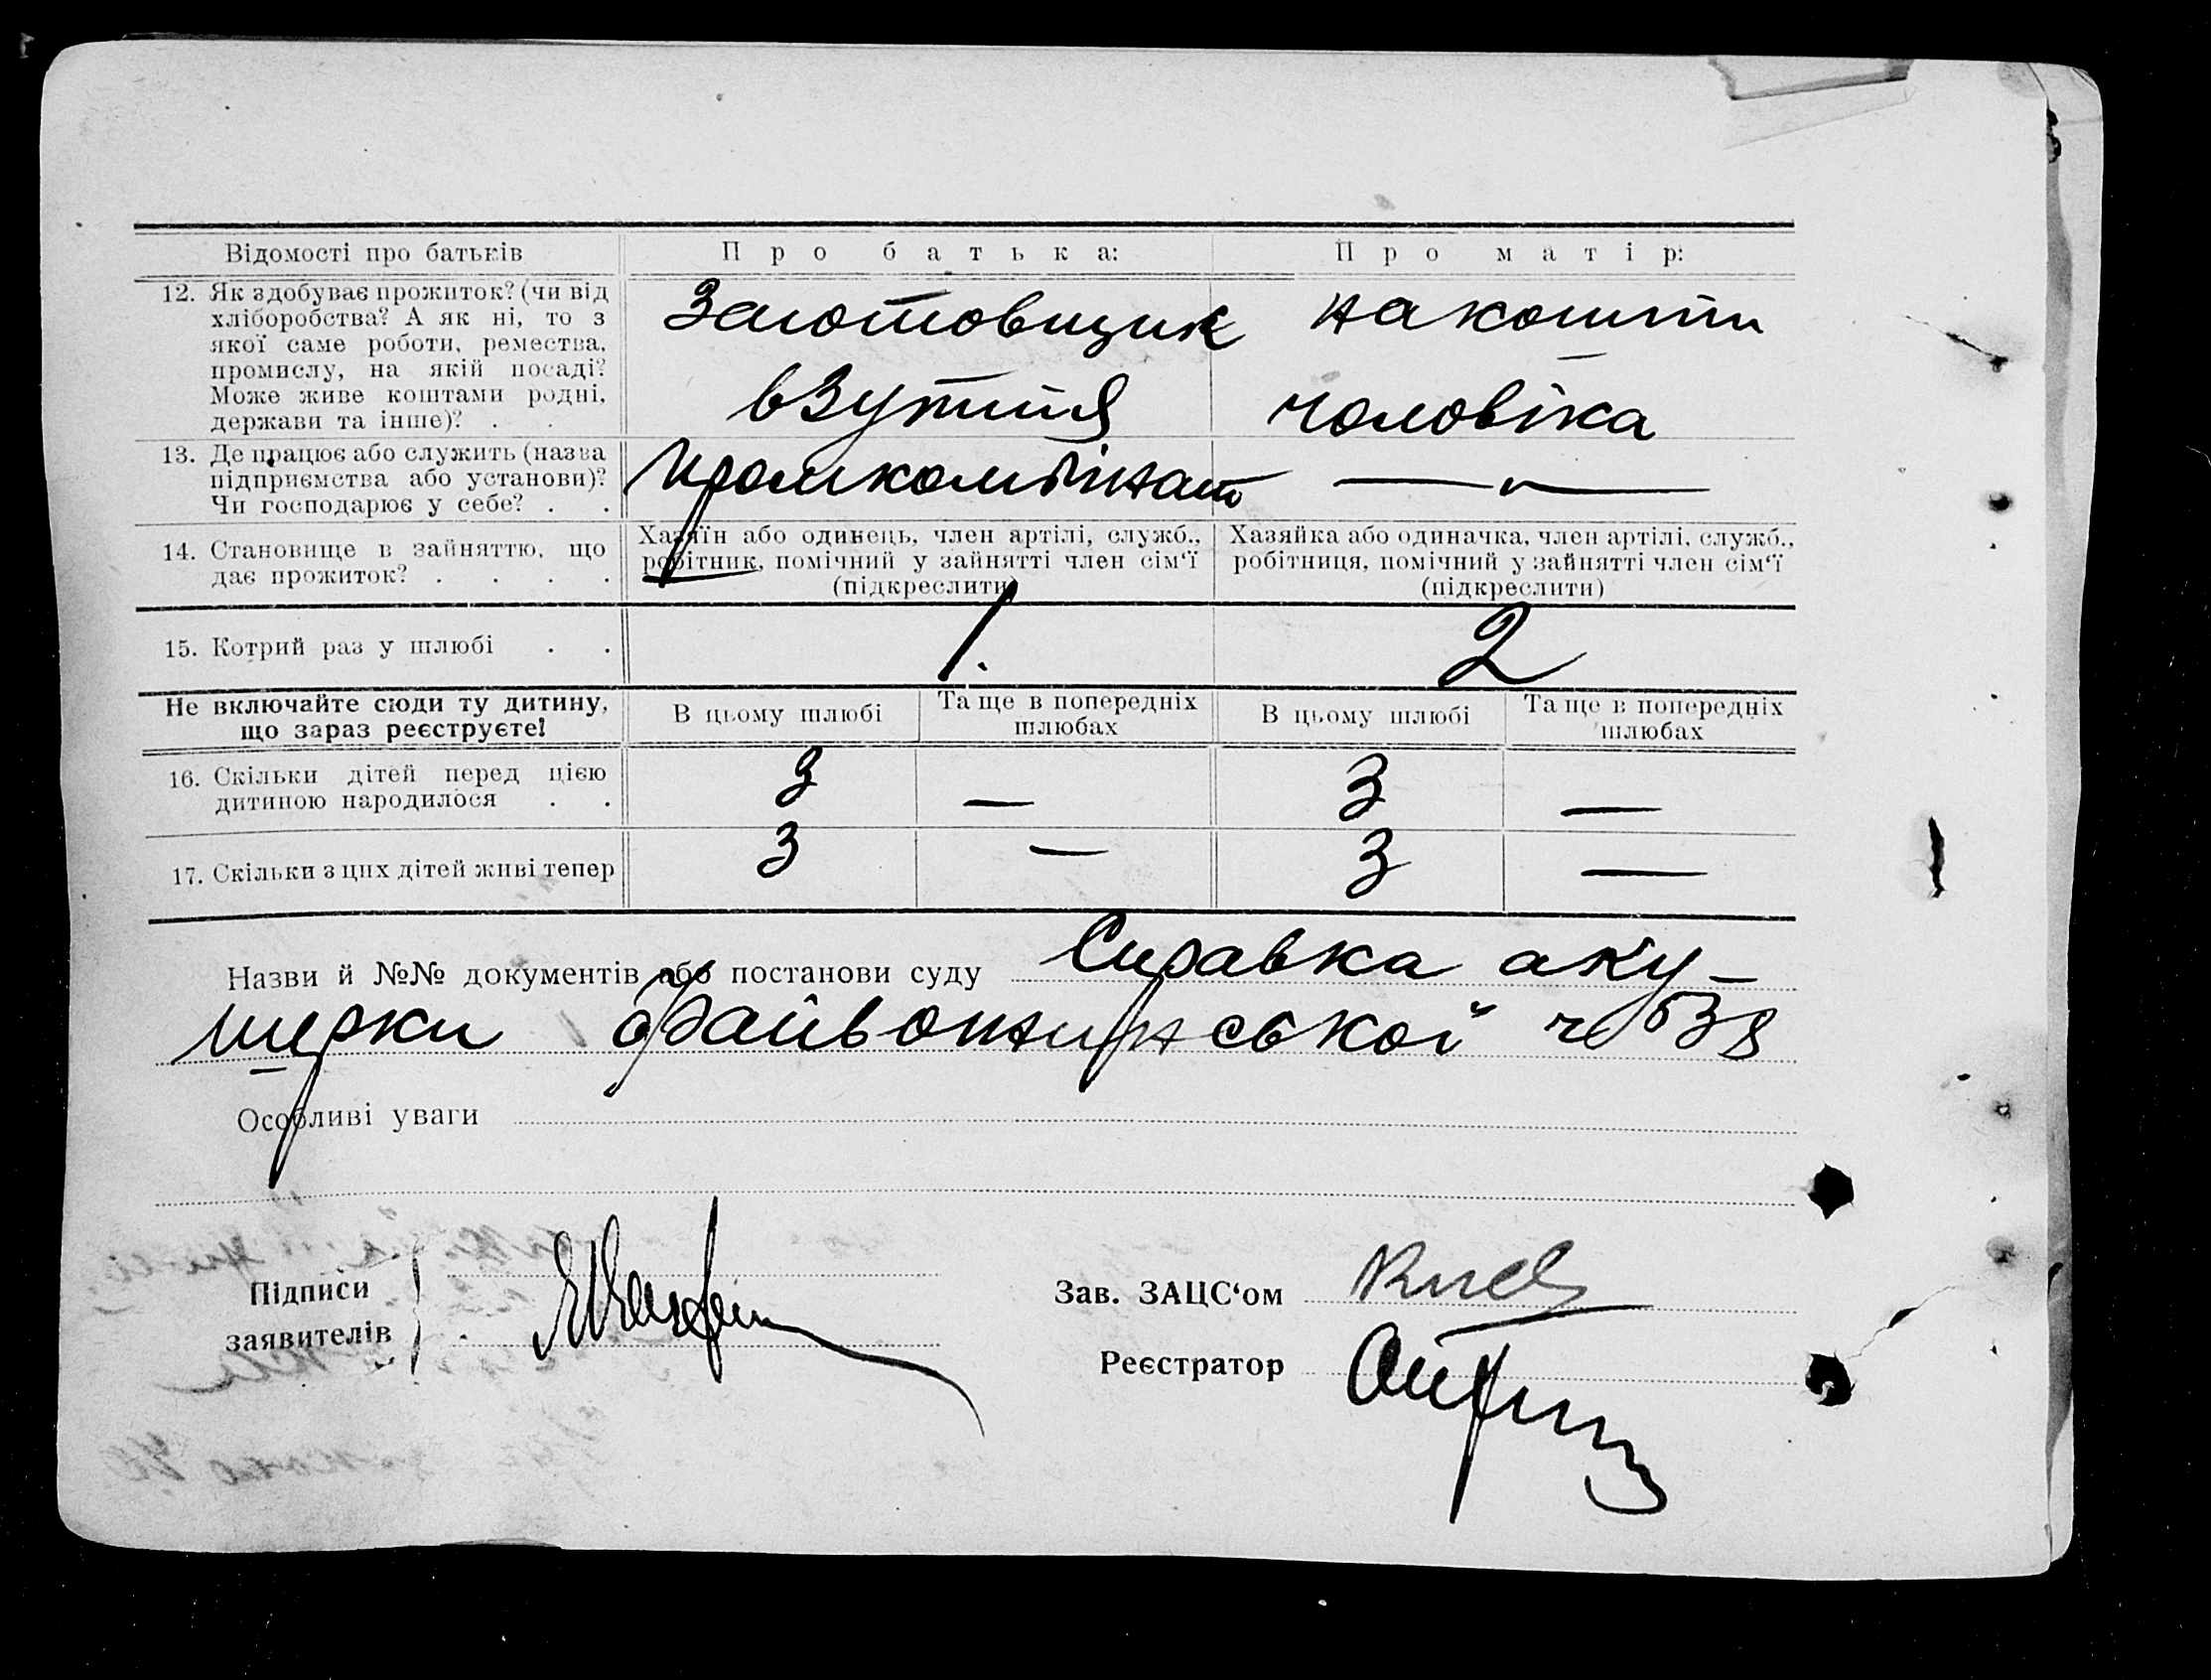 Відомості про батьків
Про батька:
Про матір:
12. Як здобуває прожиток? (чи від
хліборобства? А як ні, то з
якої саме роботи, ремества,
промислу, на якій посаді?
Може живе коштами родні,
держави та інше)? . .
Заготовщик
взуття
на кошти
чоловіка
13. Де працює або служить (назва
підприємства або установи)?
Чи господарює у себе? . .
Промкомбінат
14. Становище в зайняттю, що
дає прожиток? . . . .
Хазяїн або одинець, член артілі, служб.,
робітник, помічний у зайнятті член сім‘ї
(підкреслити)
Хазяйка або одиначка, член артілі, служб.,
робітниця, помічний у зайнятті член сім‘ї
(підкреслити)
15. Котрий раз у шлюбі . .
1.
2
Не включайте сюди ту дитину,
що зараз реєструєте!
В цьому шлюбі
Та ще в попередніх
шлюбах
В цьому шлюбі
Та ще в попередніх
шлюбах
16. Скільки дітей перед цією
дитиною народилося . .
3
—
3
—
17. Скільки з цих дітей живі тепер
3
—
3
—
Назви й №№ документів або постанови суду Справка аку-
шерки 538
Особливі уваги
Підписи
заявителів
Зав. ЗАЦС‘ом
Реєстратор